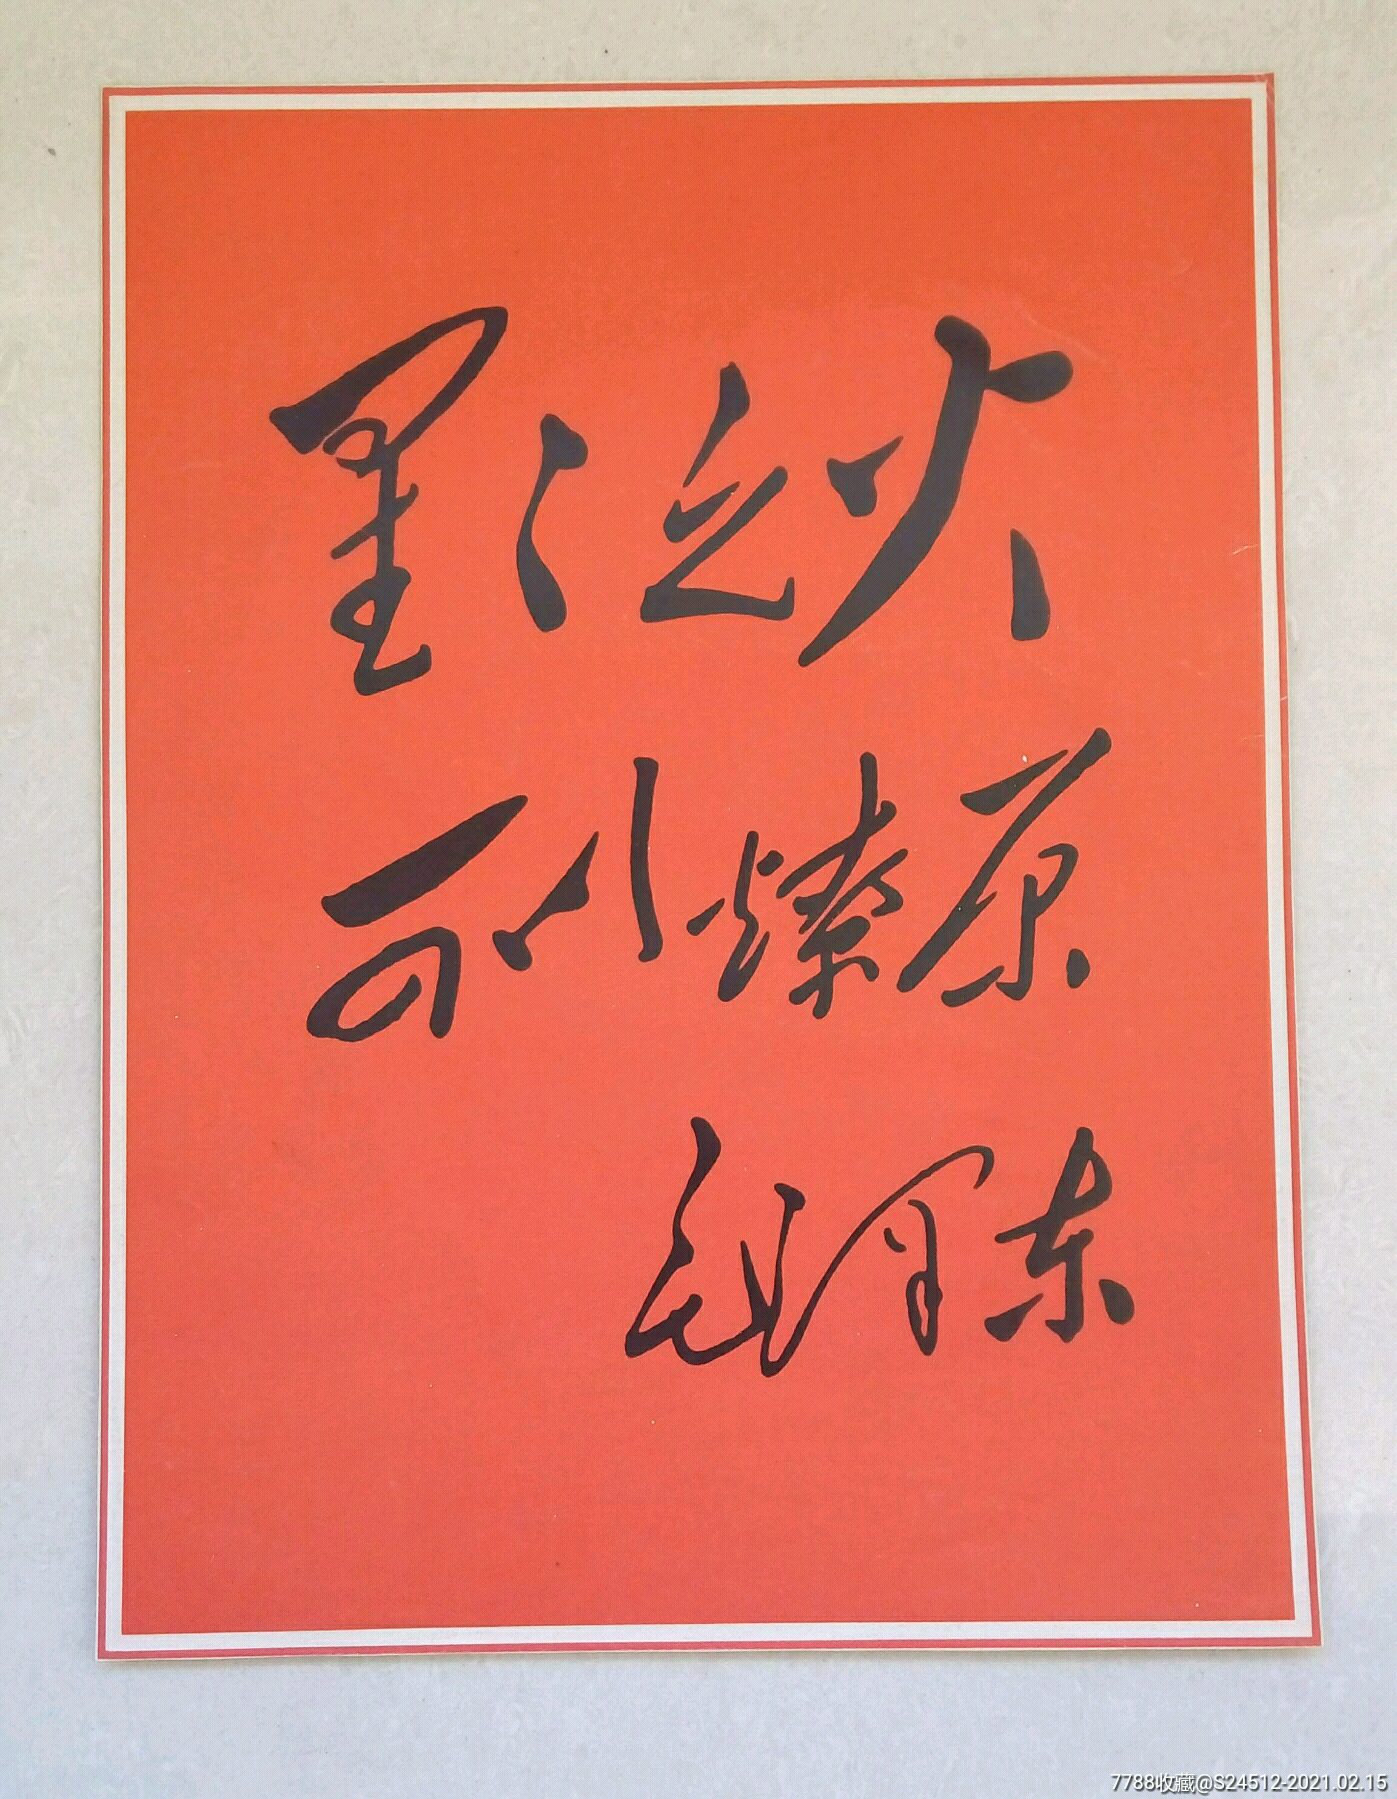 星星之火
可以燎原
毛泽东
7788收藏@S24512-2021.02.15